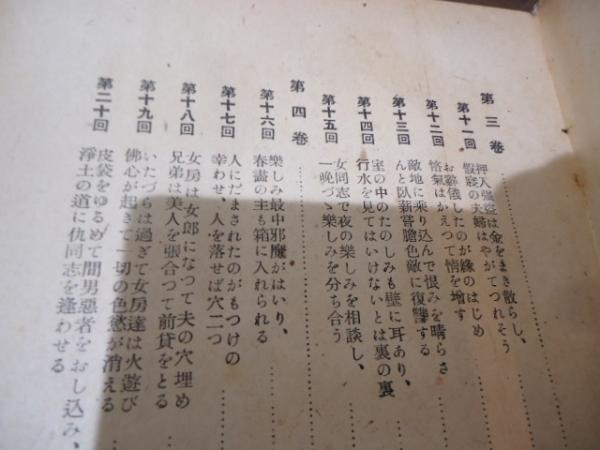 第三卷
第十一回
押入强盗は金をまき散らし、
假寝の夫婦はやがてつれそう
第十二回
お辭儀したのが縁のはじめ
悋氣はかえつて情を増す
第十三回
敵地に乗り込んで恨みを晴らさ
んと臥薪嘗膽色敵に復讐する
第十四回
室の中のたのしみも壁に耳あり、
行水を見てはいけないとは裏の裏
第十五回
女同志で夜の樂しみを相談し、
一晩づゝ樂しみを分ち合う
第四卷
第十六回
樂しみ最中邪魔がはいり、
春畫の主も箱に入れられる
第十七回
人にだまされたのがもつけの
幸わせ、人を落せば穴二つ
第十八回
女房は女郎になつて夫の穴埋め
兄弟は美人を張合つて前貸をとる
第十九回
いたづらは過ぎて女房達は火遊び
佛心が起きて一切の色慾が消える
第二十回
皮袋をゆるめて間男惡者をおし込み、
淨土の道に仇同志を逢わせる